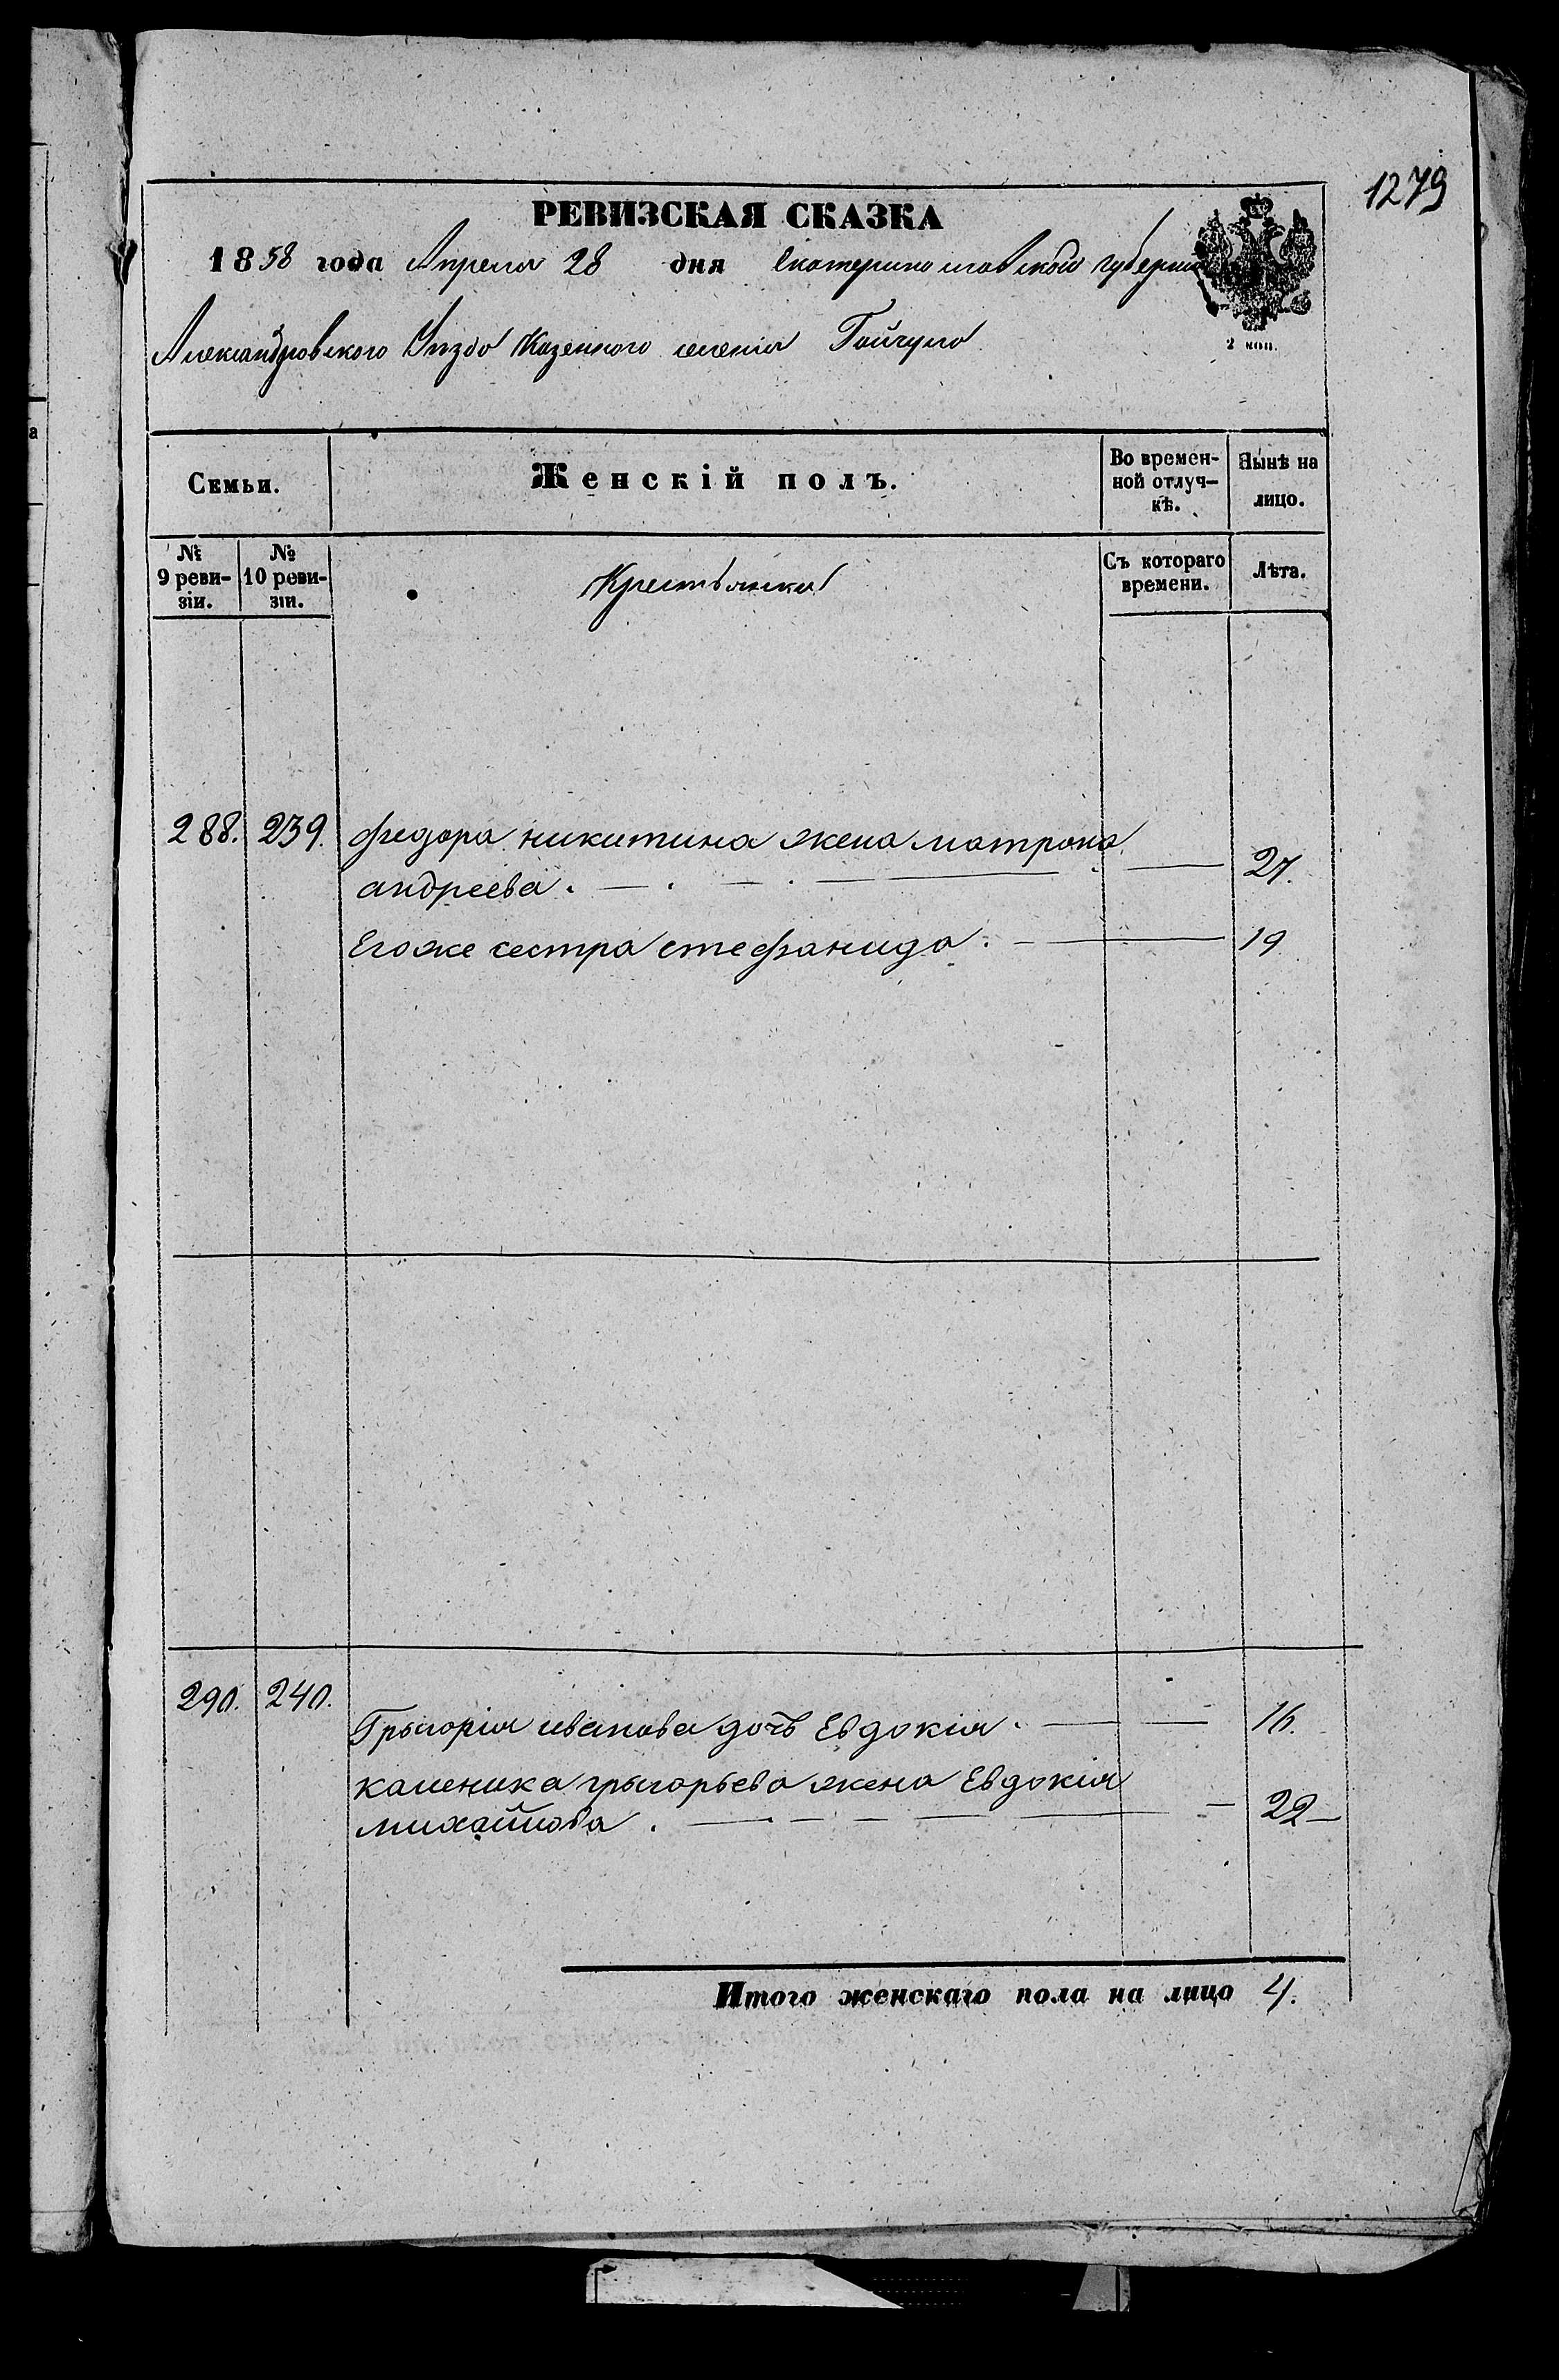 1279
РЕВИЗСКАЯ СКАЗКА
1858 года Апреля 28 дня Екатеринославской губернии
Александровского Уезда Казенного селенія Гайчула
2 коп.
Семьи. Женскій полъ. Во временной отлучкѣ. Нынѣ на лицо.
№ 9 ревизіи. № 10 ревизіи. Крестьянки Съ котораго времени. Лѣта.
288. 239. федора никитина жена матрона
андреева. 27.
Егоже сестра стефанида. 19
290. 240.
Грыгорія иванова дочь Евдокія. 16.
каленика грыгорьева жена Евдокія
михайлова. 22
Итого женскаго пола на лицо 4.